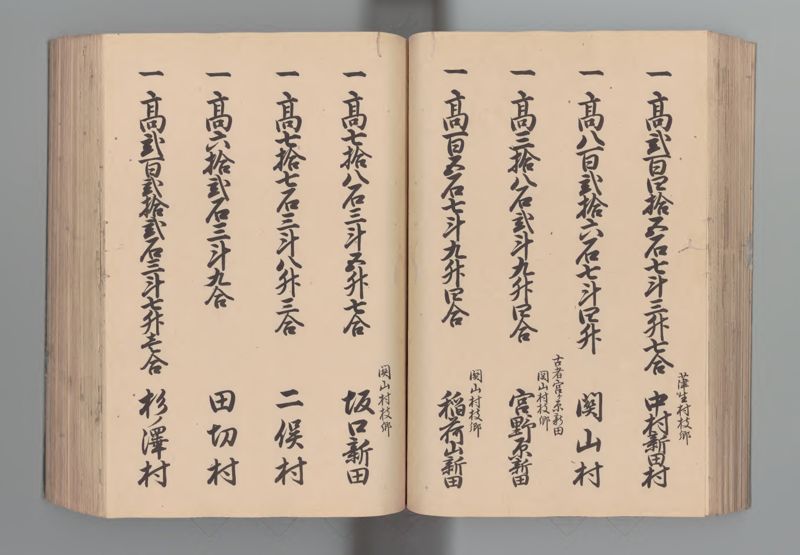 一高弐百四拾五石七斗三升七合
蒲生村枝郷
中村新田村
一高八百弐拾六石七斗四升
関山村
一高三拾八石弐斗九升四合
古者宮ノ原新田
関山村枝郷
宮野原新田
一高百五石七斗九升四合
関山村枝郷
稲荷山新田
一高七拾八石三斗五升七合
関山村枝郷
坂口新田
一高七拾七石三斗八升三合
二俣村
一高六拾弐石三斗九合
田切村
一高弐百弐拾弐石三斗七升壱合
杉ノ澤村